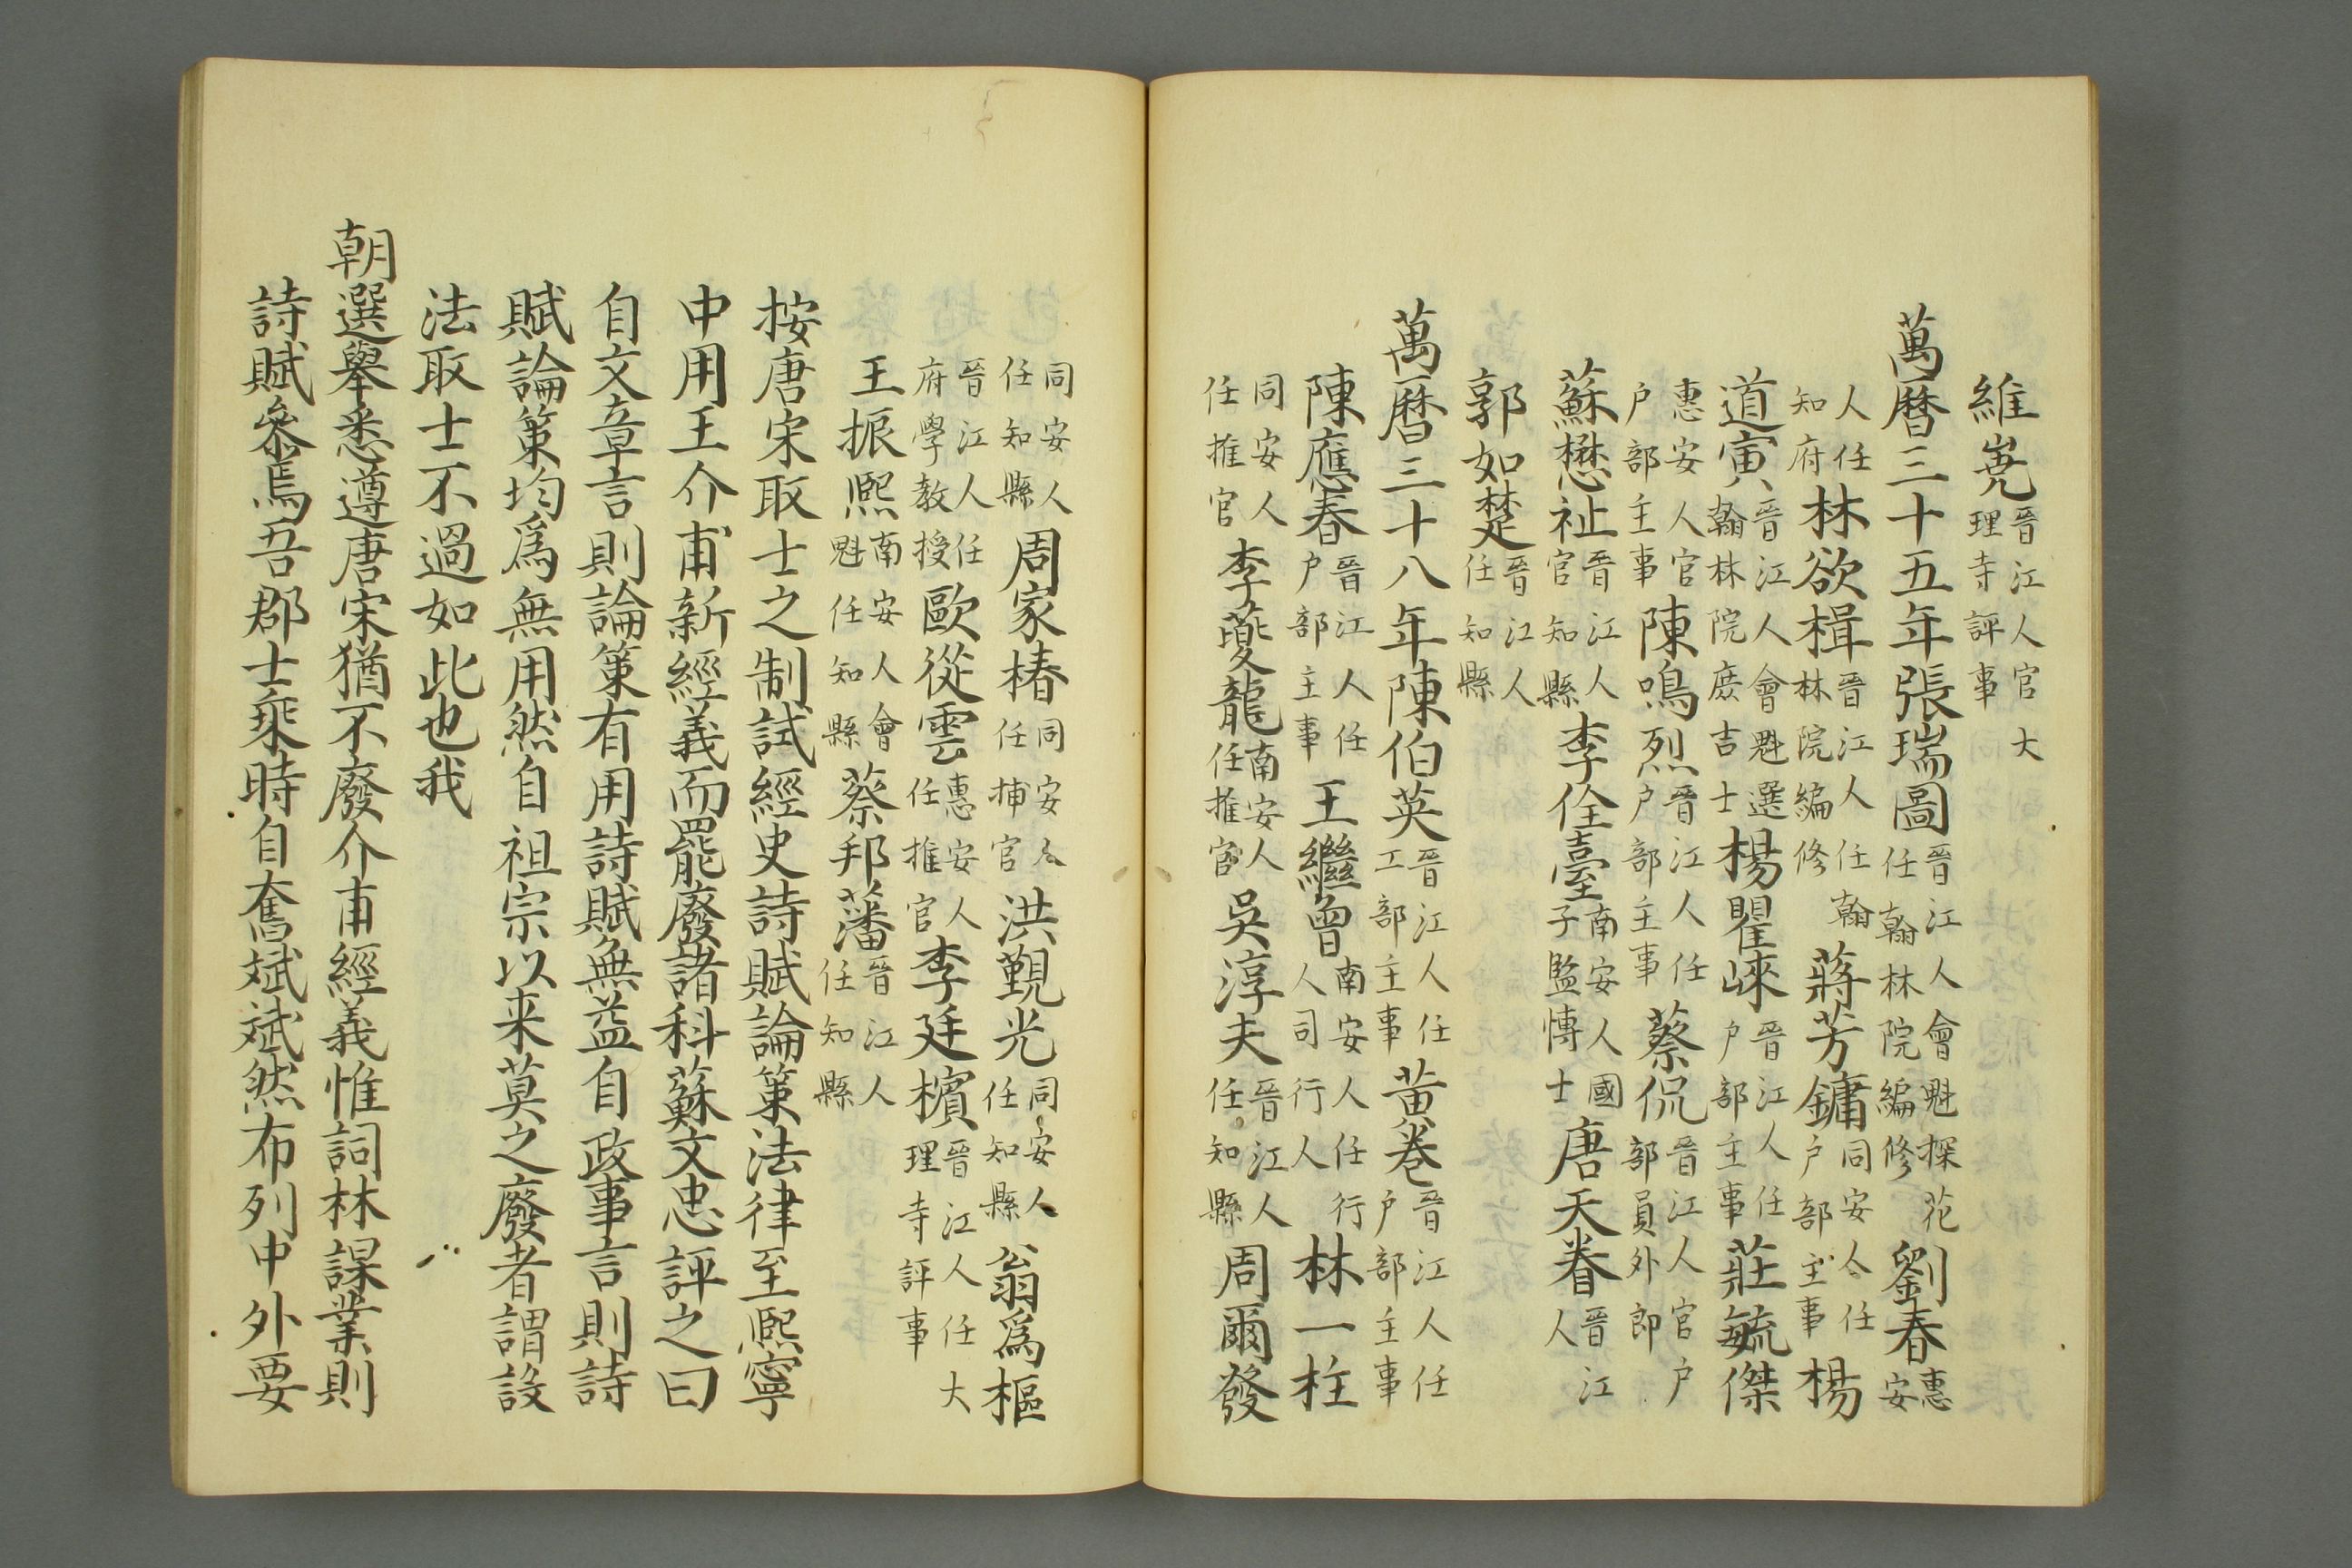 維嵬晉江人官大理寺評事
萬曆三十五年張瑞圖晉江人會魁探花任翰林院編修劉春惠安
人任知府林欲楫晉江人任翰林院編修蔣芳鏞同安人任户部主事楊
道寅晉江人會魁選翰林院庶吉士楊瞿崍晉江人任户部主事莊毓傑
惠安人官户部主事陳鳴烈晉江人任户部主事蔡侃晉江人官户部員外郎
蘇懋祉晉江人官知縣李佺臺南安人國子監博士唐天眷晉江人
郭如楚晉江人任知縣
萬曆三十八年陳伯英晉江人任工部主事黄卷晉江人任户部主事
陳應春晉江人任户部主事王繼曾南安人任行人司行人林一柱
同安人任推官李夔龍南安人任推官吳淳夫晉江人任知縣周爾發
同安人任知縣周家椿同安人任推官洪觀光同安人任知縣翁爲樞
晉江人任府學教授歐從雲惠安人任推官李廷櫕晉江人任大理寺評事
王振熙南安人會魁任知縣蔡邦藩晉江人任知縣
按唐宋取士之制試經史詩賦論策法律至熙寧
中用王介甫新經義而罷廢諸科蘇文忠評之曰
自文章言則論策有用詩賦無益自政事言則詩
賦論策均爲無用然自祖宗以来莫之廢者謂設
法取士不過如此也我
朝選舉悉遵唐宋猶不廢介甫經義惟詞林課業則
詩賦參焉吾郡士乘時自奮斌斌然布列中外要